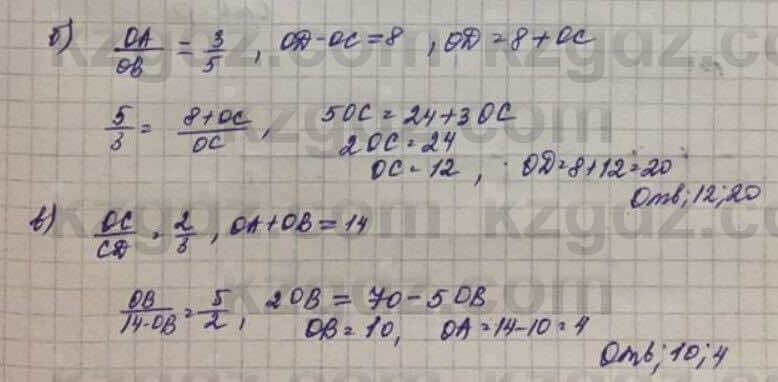 б) OA/OB = 3/5, OD-OC=8, OD=8+OC
5/3 = 8+OC/OC, 5OC=24+3OC
2OC=24
OC=12, OD=8+12=20
Отв; 12; 20
в) OC/CD = 2/3, OA+OB=14
OB/14-OB = 5/2, 2OB=70-5OB
OB=10, OA=14-10=4
Отв; 10; 4
kzgdz.com